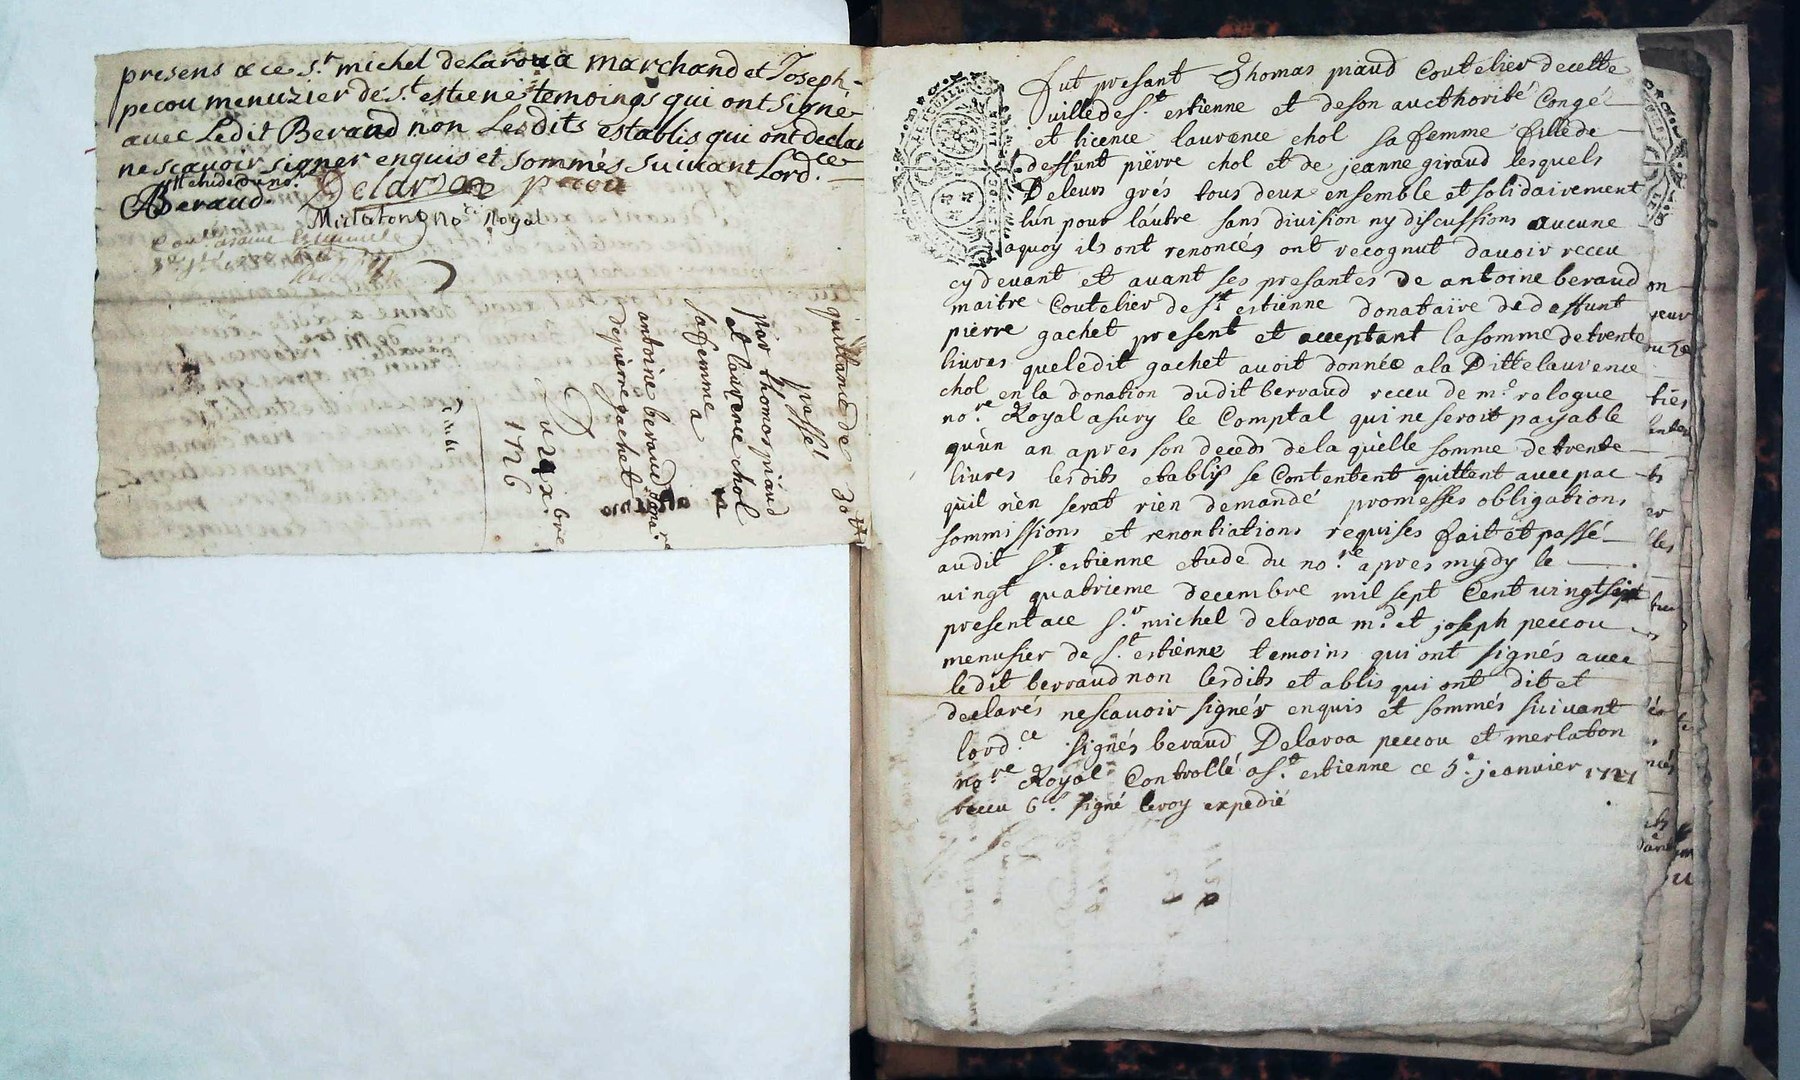 presens a ce s.r michel delaroua marchand et Joseph
pecou menuzier de s.t estiene temoings qui ont signé
avec Ledit Beraud non Lesdits establis qui ont declar
ne scavoir signer enquis et sommés suivant Lord.ce
Beraud Delaroa pecou
no.e Royal
quittance de 30lt
passé
par thomas piaud
et laurence chol
sa femme a
antoine beraud dona.re
de pierre gachet
Du 24 xbre
1726
Fut presant Thomas piaud Coutelier de cette
ville de s.t estienne et de son aucthorité Congé
et licence laurence chol sa femme fille de
deffunt piërre chol et de jeanne giraud lesquels
De leurs grés tous deux ensemble et solidairement
lun pour láutre sans division ny discussions aucune
aquoy ils ont renoncés ont recognut davoir receu
cy devant et avant ses presantes de antoine beraud
maitre Coutelier de s.t estienne donataire de deffunt
pierre gachet present et acceptant la somme de trente
livres que ledit gachet avoit donnée a la Ditte laurence
chol en la donation dudit berraud receu de m.e relogue
no.re Royal a sury le Comptal qui ne seroit payable
qu'ùn an apres son deceds de la quèlle somme de trente
livres lesdits etablis se Contentent quittent avec pac
quìl nèn serat rièn demandé promesses obligations
sommissions et renontiations requises fait et passé
audit s.t estienne etude du no.re apres mydy le
vingt quatrieme decembre mil sept Cent vingt sixt
present a ce s.r michel delaroa m.d et joseph peccou
menusier de s.t estiènne temoins qui ont signés avec
ledit berraud non lesdits etablis qui ont dit et
declarés ne scavoir signér enquis et sommés suivant
lord.ce signés beraud, Delaroa peccou et merlaton
no.re Royal Controllé a s.t estienne ce 5.e jeanvier 1727
receu 6 s. signé leroy expedié